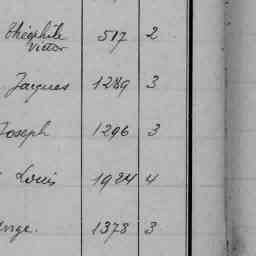 Théophile 517 2
Victor
Jacques 1289 3
Joseph 1296 3
Louis 1924 4
1378 3